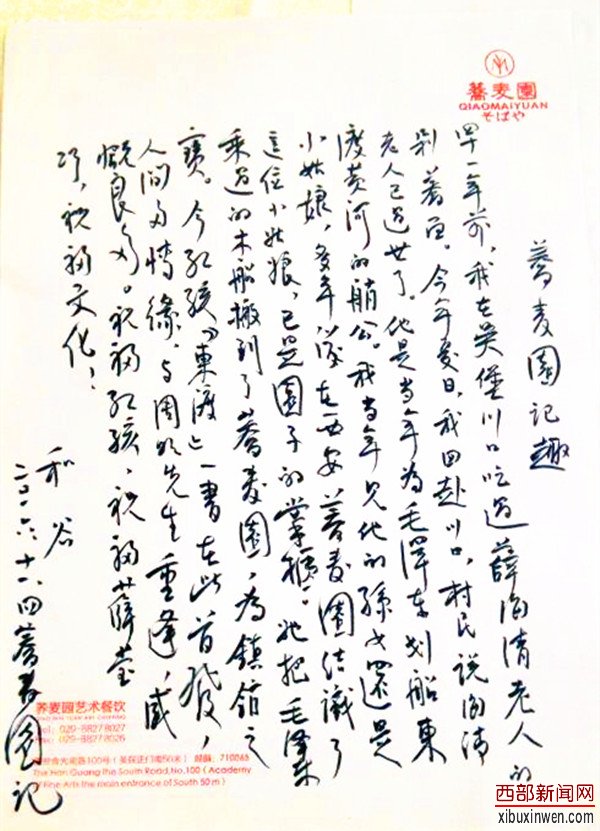 蕎麦園
QIAOMAIYUAN
そばや
蕎麦園记趣
早一年前,我在吴堡川口吃过薛海清老人的
剁荞面。今年夏日,我回赴川口,村民说海清
老人已过世了。他是当年为毛泽东划船東
渡黄河的艄公。我当年见他的孫女還是
小姑娘,多年以後在西安蕎麦園结識了
這位小姑娘,已是園子的掌櫃。她把毛泽東
乘过的木船搬到了蕎麦園,為鎮館之
寶。今红孩《東渡》一書在此首發,
人间多情缘,与周明先生重逢,感
慨良多。祝福红孩,祝福薛莹
巧,祝福文化!
和谷
二〇一六.十一.四蕎麦園记
荞麦园艺术餐饮
Tel: 029-8827 8027
Fax: 029-8827 8026
含光南路100号(美院正门南50米) 邮编:710065
The Han Guang the South Road,No.100 (Academy
of Fine Arts the main entrance of South 50m)
西部新闻网
xibuxinwen.com